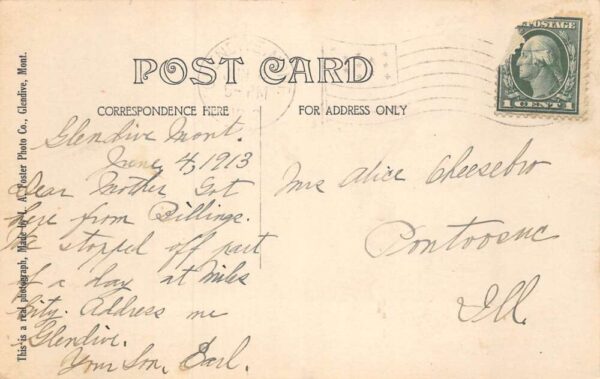 POST CARD
CORRESPONDENCE HERE
FOR ADDRESS ONLY
POSTAGE
1 CENT 1
Glendive Mont.
June 4, 1913
Dear Mother Got
here from Billings.
We stopped off part
of a day at Miles
City. Address me
Glendive.
Your Son, Earl.
Mrs Alice Cheesebro
Pontoosuc
Ill.
This is a real photograph, Made by L. A. Foster Photo Co., Glendive, Mont.